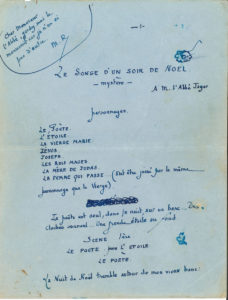 Cher Monsieur
l'Abbé, gardez
manuscrit car je n'en ai
pas d'autre.
M. R.
- 1 -
LE SONGE D'UN SOIR DE NOËL
- mystère -
A M. l'Abbé Jäger
personnages.
LE POÈTE
L'ETOILE
LA VIERGE MARIE.
JÉSUS.
JOSEPH
LES ROIS MAGES
LA MÈRE DE JUDAS.
LA FEMME QUI PASSE (Peut être joué par le même
personnage que la Vierge)
Le poète est seul, dans la nuit, sur un banc. Des
cloches sonnent. Une grande étoile au
SCÈNE 1ère
LE POÈTE puis L'ETOILE
LE POÈTE
La Nuit de Noël tremble autour de mes vieux bancs: